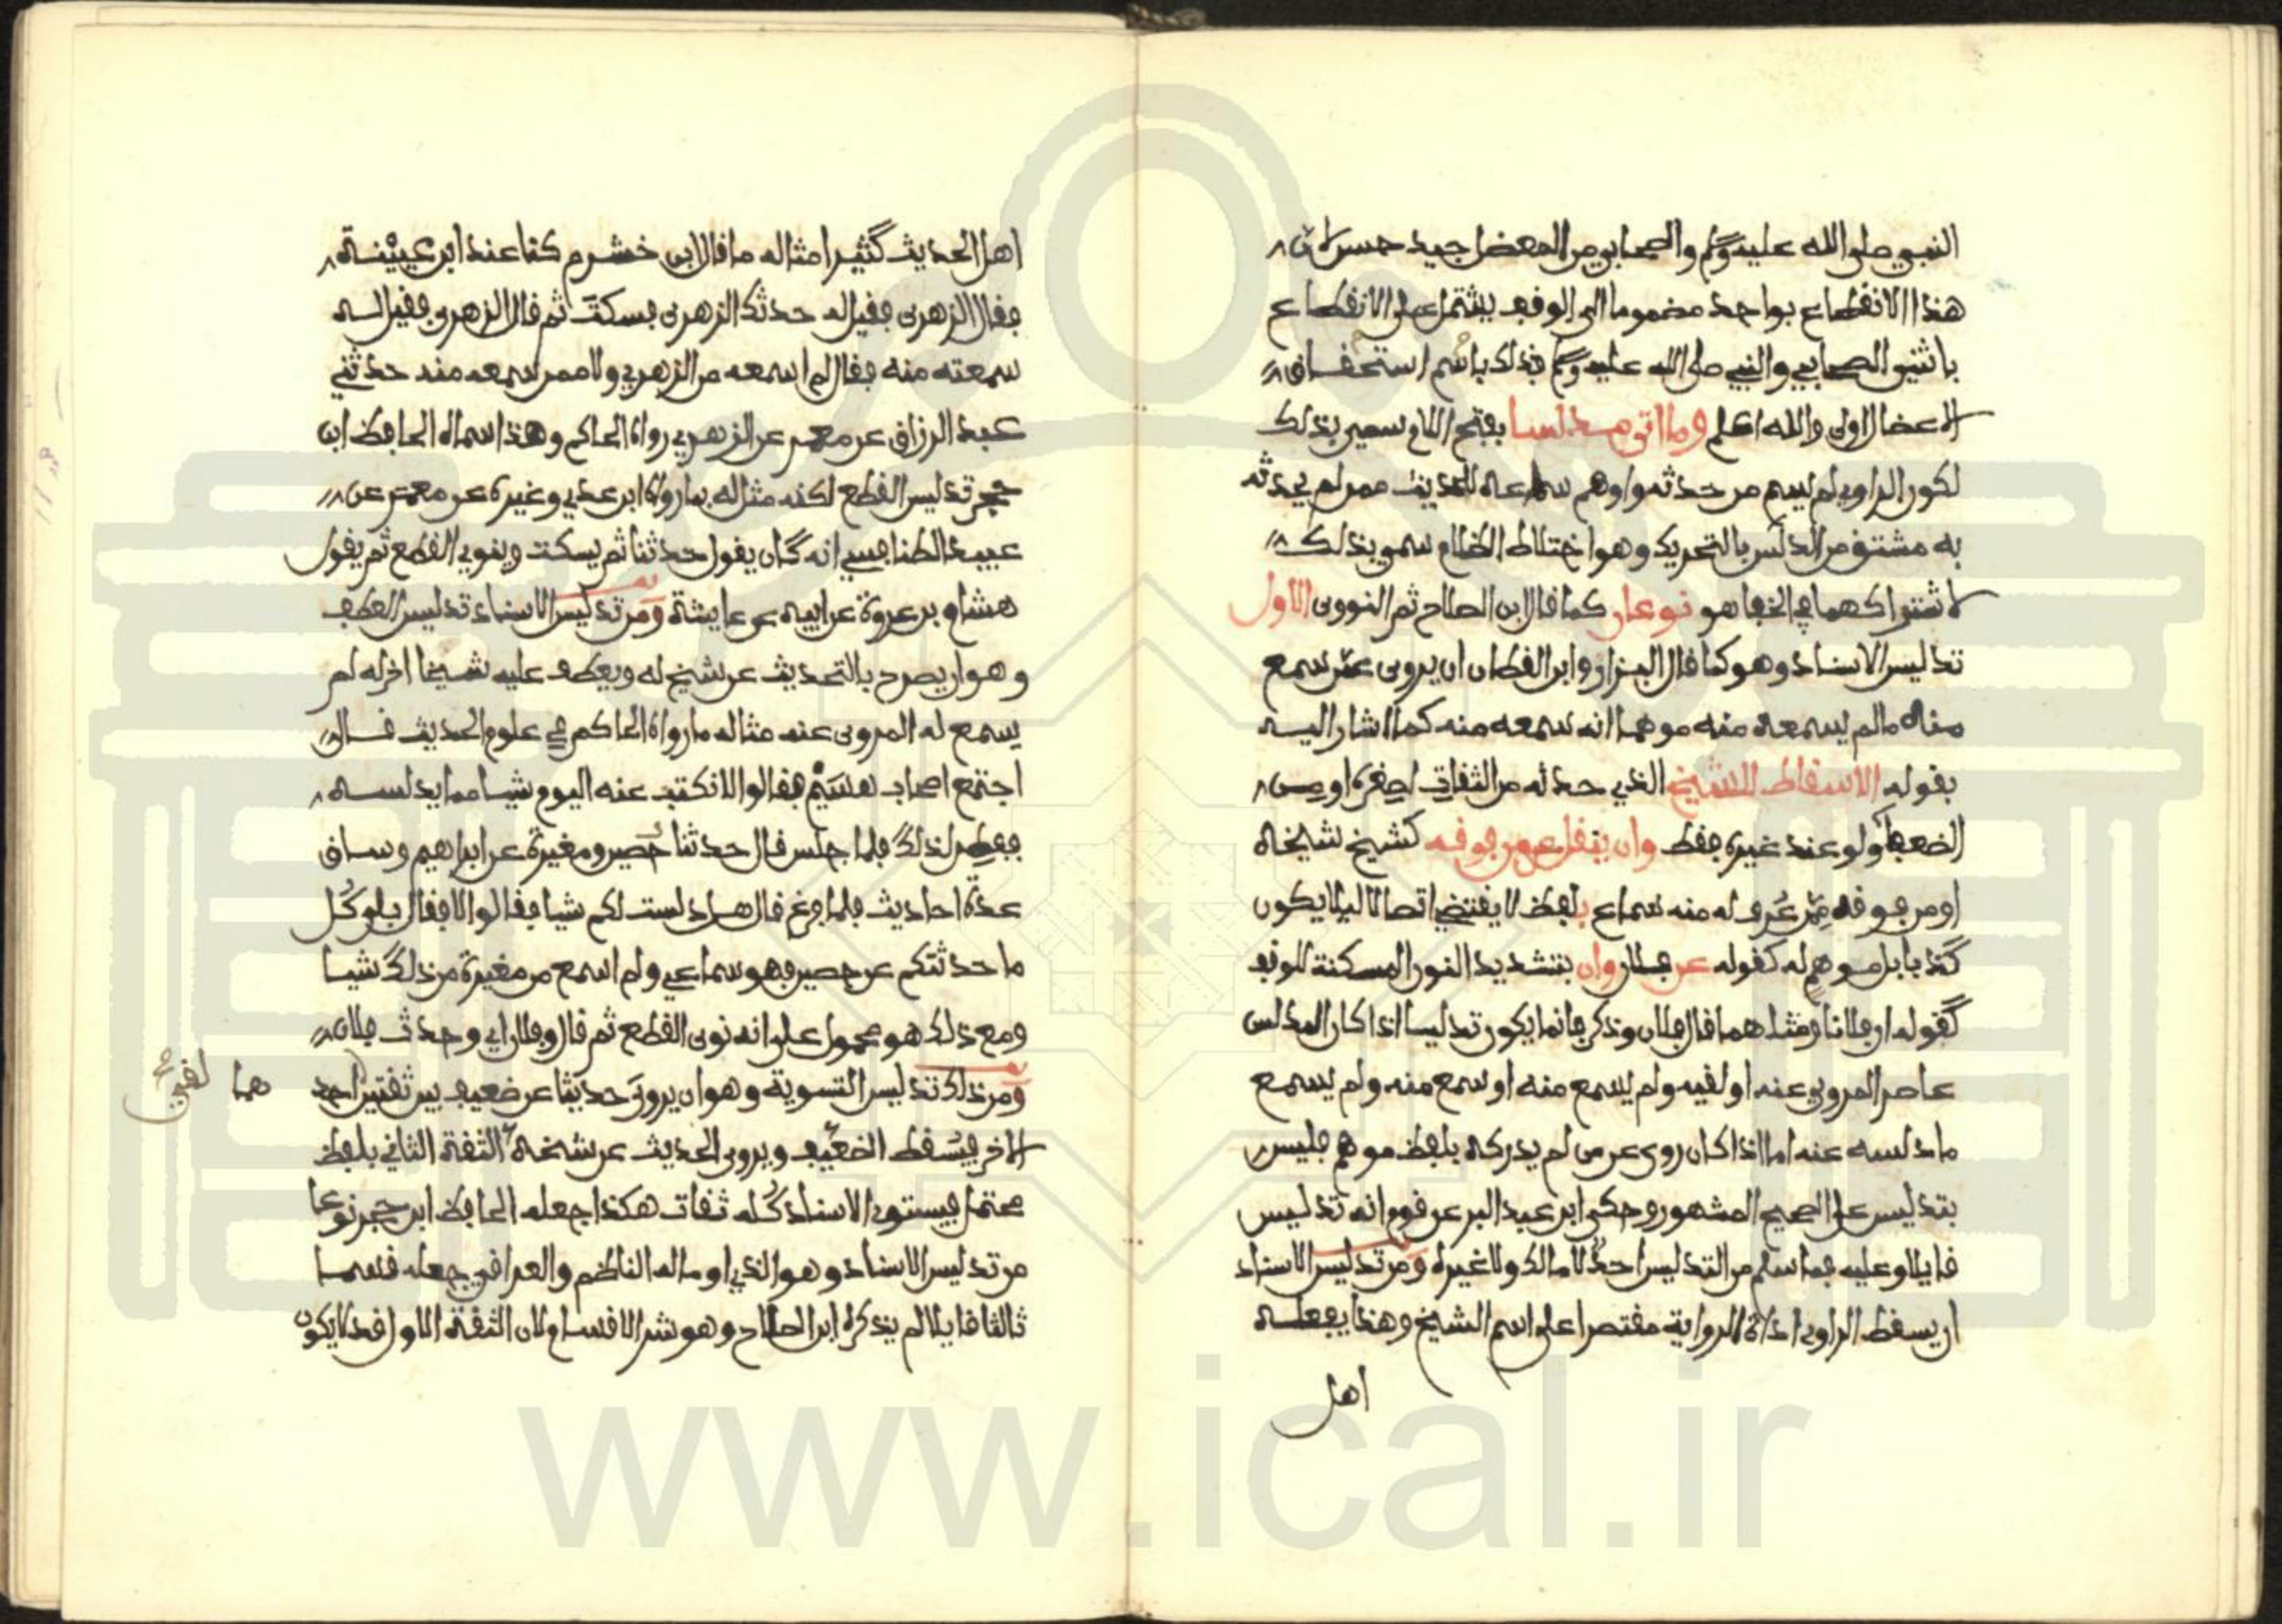 النبي صلى الله عليه وسلم والصحابي من المعضل جيد حسن لان
هذا الانقطاع بواحد مضموما الى الوقف يشتمل على الانقطاع
باثنين الصحابي والنبي صلى الله عليه وسلم فذلك باسم استحقاق
الاعضال اولى والله اعلم وما اتى مدلسا بفتح اللام سمي بذلك
لكون الراوي لم يسم من حدثه واوهم سماعه للحديث ممن لم يحدثه
به مشتق من الدلس بالتحريك وهو اختلاط الظلام سمي بذلك
لاشتراكهما في الخفا هو نوعان كما قال ابن الصلاح ثم النووي الاول
تدليس الاسناد وهو كما قال البزار وابن القطان ان يروى عمن سمع
منه مالم يسمعه منه موهما انه سمعه منه كما اشار اليه
بقوله الاسقاط للشيخ الذي حدثه من الثقات لصغره او من
الضعفا ولو عند غيره فقط وان ينقل عمن فوقه كشيخ شيخه
او من فوقه ممن عرف له منه سماع بلفظ لا يقتضي اتصالا ليلا يكون
كذبا بل موهم له كقوله عن فلان وان بتشديد النون المسكنة للوقف
كقوله ان فلانا ومثلهما قال فلان وذكر فانما يكون تدليسا اذا كان المدلس
عاصر المروي عنه او لقيه ولم يسمع منه او سمع منه ولم يسمع
ما دلسه عنه اما اذا كان روى عن من لم يدركه بلفظ موهم فليس
بتدليس على الصحيح المشهور وحكى ابن عبد البر عن قوم انه تدليس
قايلا وعليه فما سلم من التدليس احد لا مالك ولا غيره ومن تدليس الاسناد
ان يسقط الراوي اداة الرواية مقتصرا على اسم الشيخ وهذا يفعله
اهل
اهل الحديث كثيرا مثاله ما قال ابن خشرم كنا عند ابن عيينة
فقال الزهري فقيل له حدثك الزهري فسكت ثم قال الزهري فقيل له
سمعته منه فقال لم اسمعه من الزهري ولا ممن سمعه منه حدثني
عبد الرزاق عن معمر عن الزهري رواه الحاكم وهذا سماه الحافظ ابن
حجر تدليس القطع لكنه مثاله بما رواه ابن عدي وغيره عن معمر عن
عبيد الطنافسي انه كان يقول حدثنا ثم يسكت وينوي القطع ثم يقول
هشام بن عروة عن ابيه عن عايشة ومن تدليس الاسناد تدليس العطف
وهو ان يصرح بالتحديث عن شيخ له ويعطف عليه شيخا اخر له لم
يسمع له المروى عنه مثاله ما رواه الحاكم في علوم الحديث قال
اجتمع اصحاب هشيم فقالوا لا نكتب عنه اليوم شيا مما يدلسه
ففطن لذلك فلما جلس قال حدثنا حصين ومغيرة عن ابراهيم وساق
عدة احاديث فلما فرغ قال هل دلست لكم شيا فقالوا لا فقال بلى كل
ما حدثتكم عن حصين فهو سماعي ولم اسمع من مغيرة من ذلك شيا
ومع ذلك هو محمول على انه نوى القطع ثم قال وفلان اي وحدث فلان
ومن ذلك تدليس التسوية وهو ان يروى حديثا عن ضعيف بين ثقتين احد
هما
لقي
الاخر فيسقط الضعيف ويروى الحديث عن شيخه الثقة الثاني بلفظ
محتمل فيستوى الاسناد كله ثقات هكذا جعله الحافظ ابن حجر نوعا
من تدليس الاسناد وهو الذي اوما له الناظم والعراقي جعله قسما
ثالثا قايلا لم يذكره ابن الصلاح وهو شر الاقسام لان الثقة الاول قد لا يكون
www.ical.ir